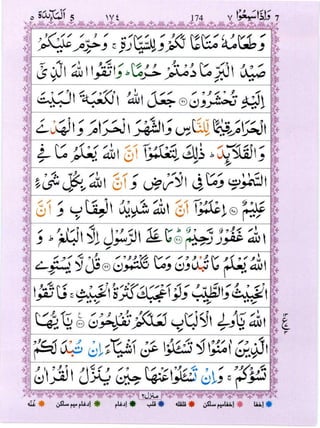 ٥ المآئدة 5 ١٧٤ 174 ٧ واذا سمعوا 7
وَطَعَامُهٗ مَتَاعًا لَّكُمْ وَلِلسَّيَّارَةِ ۚ وَحُرِّمَ عَلَيْكُمْ
صَيْدُ الْبَرِّ مَا دُمْتُمْ حُرُمًا ؕ وَاتَّقُوا اللّٰهَ الَّذِیْۤ
اِلَيْهِ تُحْشَرُوْنَ ۝ جَعَلَ اللّٰهُ الْكَعْبَةَ الْبَيْتَ
الْحَرَامَ قِيٰمًا لِّلنَّاسِ وَالشَّهْرَ الْحَرَامَ وَالْهَدْیَ
وَالْقَلَآئِدَ ؕ ذٰلِكَ لِتَعْلَمُوْۤا اَنَّ اللّٰهَ يَعْلَمُ مَا فِی
السَّمٰوٰتِ وَمَا فِی الْاَرْضِ وَ اَنَّ اللّٰهَ بِكُلِّ شَیْءٍ
عَلِيْمٌ ۝ اِعْلَمُوْۤا اَنَّ اللّٰهَ شَدِيْدُ الْعِقَابِ وَ اَنَّ
اللّٰهَ غَفُوْرٌ رَّحِيْمٌ ۝ مَا عَلَی الرَّسُوْلِ اِلَّا الْبَلٰغُ ؕ وَ
اللّٰهُ يَعْلَمُ مَا تُبْدُوْنَ وَمَا تَكْتُمُوْنَ ۝ قُلْ لَّا يَسْتَوِی
الْخَبِيْثُ وَالطَّيِّبُ وَلَوْ اَعْجَبَكَ كَثْرَةُ الْخَبِيْثِ ۚ فَاتَّقُوا
اللّٰهَ يٰۤاُولِی الْاَلْبَابِ لَعَلَّكُمْ تُفْلِحُوْنَ ۝ يٰۤاَيُّهَا
الَّذِيْنَ اٰمَنُوْا لَا تَسْئَلُوْا عَنْ اَشْيَآءَ اِنْ تُبْدَ لَكُمْ
تَسُؤْكُمْ ۚ وَاِنْ تَسْئَلُوْا عَنْهَا حِيْنَ يُنَزَّلُ الْقُرْاٰنُ
منزل ٢
اخفا اخفا میم ساکن قلقلہ قلب ادغام ادغام میم ساکن غنّہ